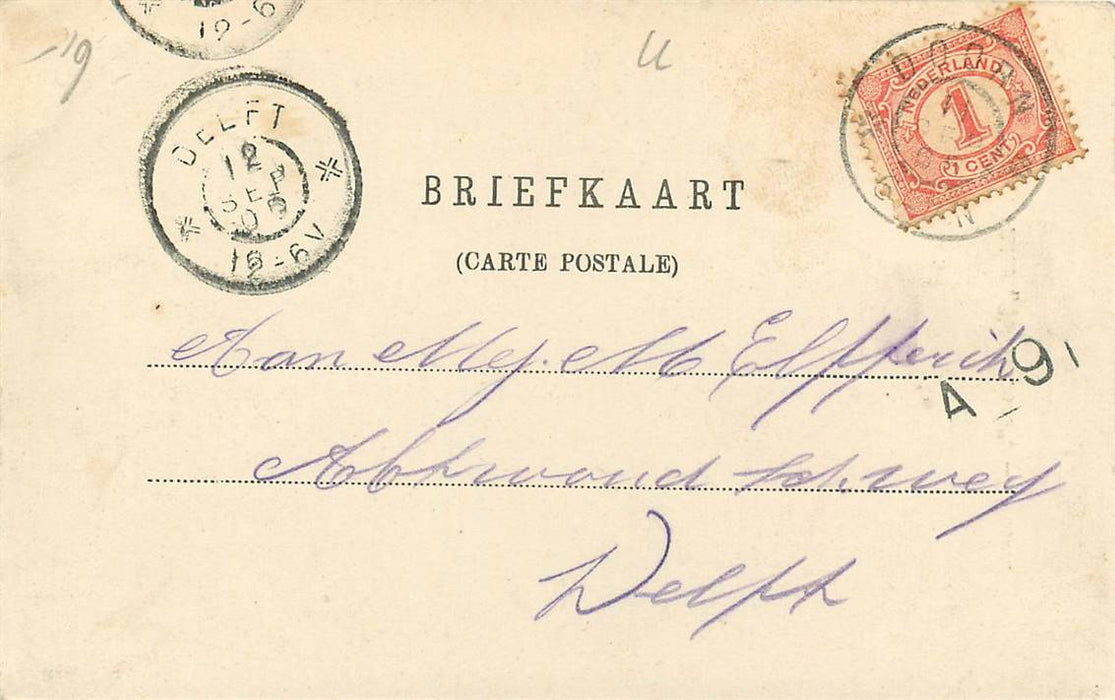 12-6
-19
U
DELFT
12
SEP
12-6V
DOORN
NEDERLAND
1
1 CENT
BRIEFKAART
(CARTE POSTALE)
Aan Mej. M Elfferich
Abtswoudscheweg
Delft
A 9